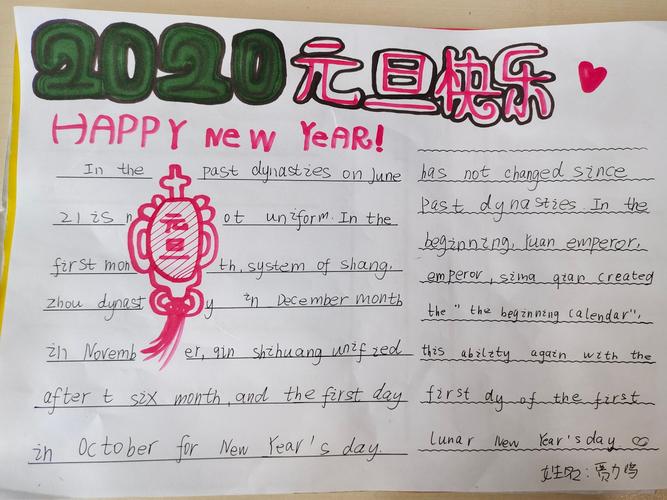 2020元旦快乐
HAPPY NEW YEAR!
In the past dynasties on June
21 is not uniform. In the
first month, system of shang.
zhou dynasty in December month
in November, qin shihuang unified
after t six month, and the first day
in October for New Year's day.
元旦
has not changed since
past dynasties. In the
beginning, Yuan emperor,
emperor, sima qian created
the "the beginning calendar",
this ability again with the
first dy of the first
lunar New Year's day
姓名: